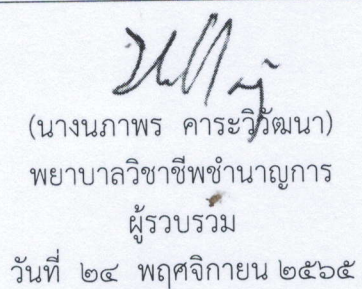 (นางนภาพร คาระวิวัฒนา)
พยาบาลวิชาชีพชำนาญการ
ผู้รวบรวม
วันที่ ๒๔ พฤศจิกายน ๒๕๖๕